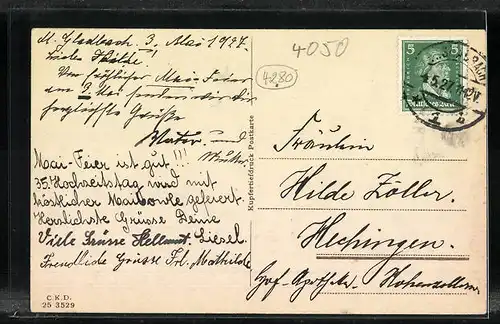 M. Gladbach. 3. Mai 1927.
Liebe Hilde!
Zur fröhlichen Mai Feier
am 3. Mai senden wir die
herzlichste Grüße
Vater. und
Mutter.
Mai-Feier ist gut!!!
35. Hochzeitstag wird mit
köstlicher Maibowle gefeiert.
Herzlichste Grüsse Deine
Viele Grüsse Hellmut. Liesel.
Freundliche Grüsse Frl. Mathilde
C.K.D.
25 3529
Kupfertiefdruck Postkarte
4050
4280
5 5
Deutsches Reich
4.5.27
Fräulein
Hilde Zöller.
Hechingen.
Hof-Apotheke. Hohenzollern.